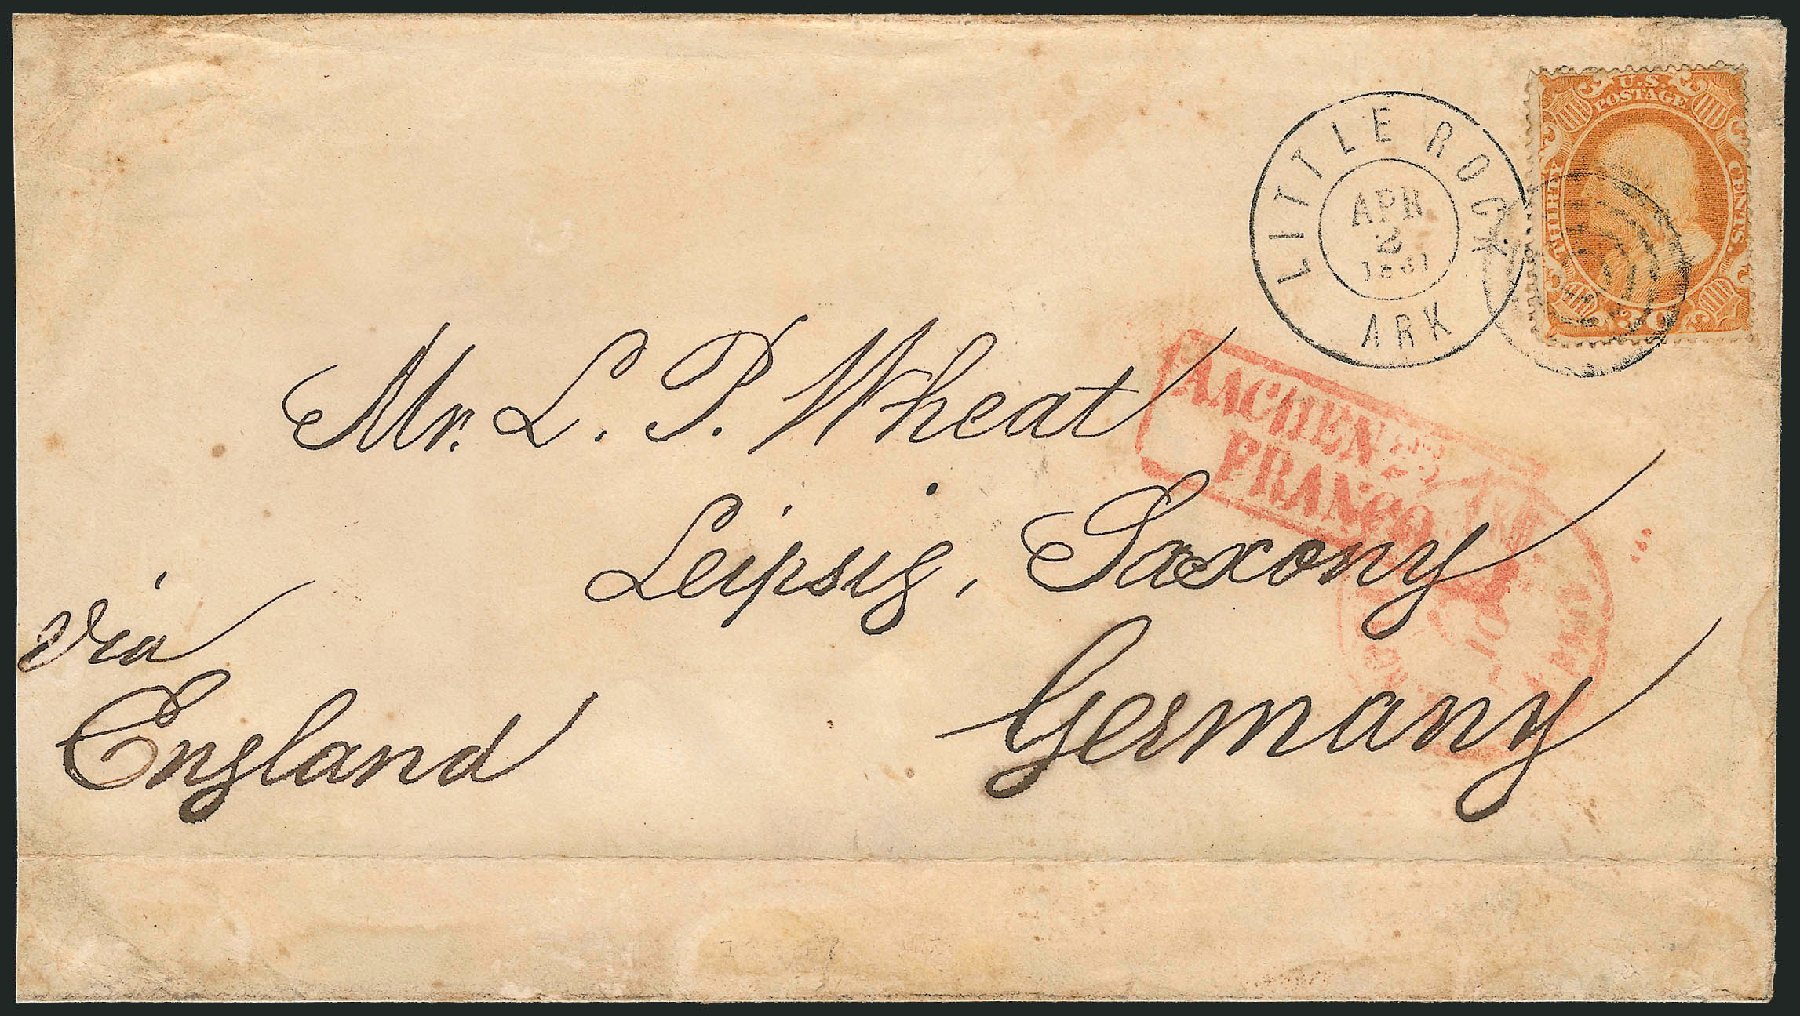 U.S.
POSTAGE
THIRTY
CENTS.
LITTLE ROCK
APR
2
1861
ARK
Mr. L. P. Wheat
AACHEN
FRANCO
Leipsig, Saxony
Germany
via
England